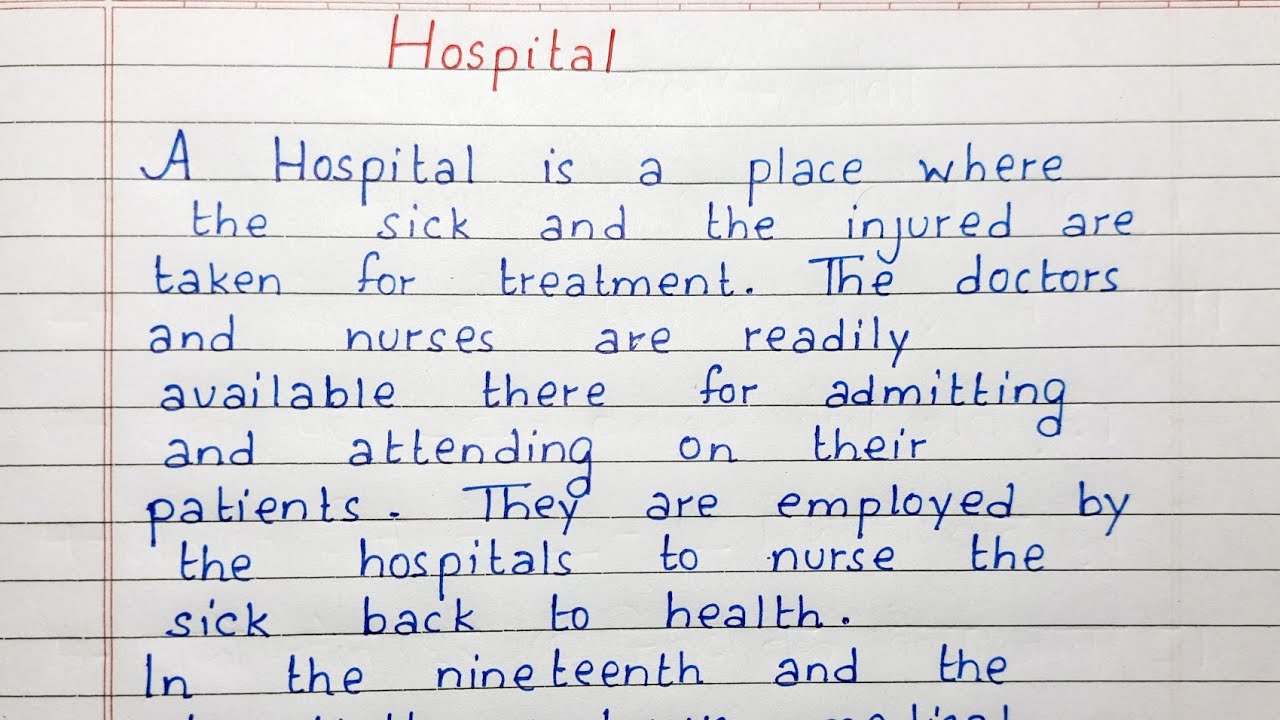 Hospital
A Hospital is a place where
the sick and the injured are
taken for treatment. The doctors
and nurses are readily
available there for admitting
and attending on their
patients. They are employed by
the hospitals to nurse the
sick back to health.
In the nineteenth and the